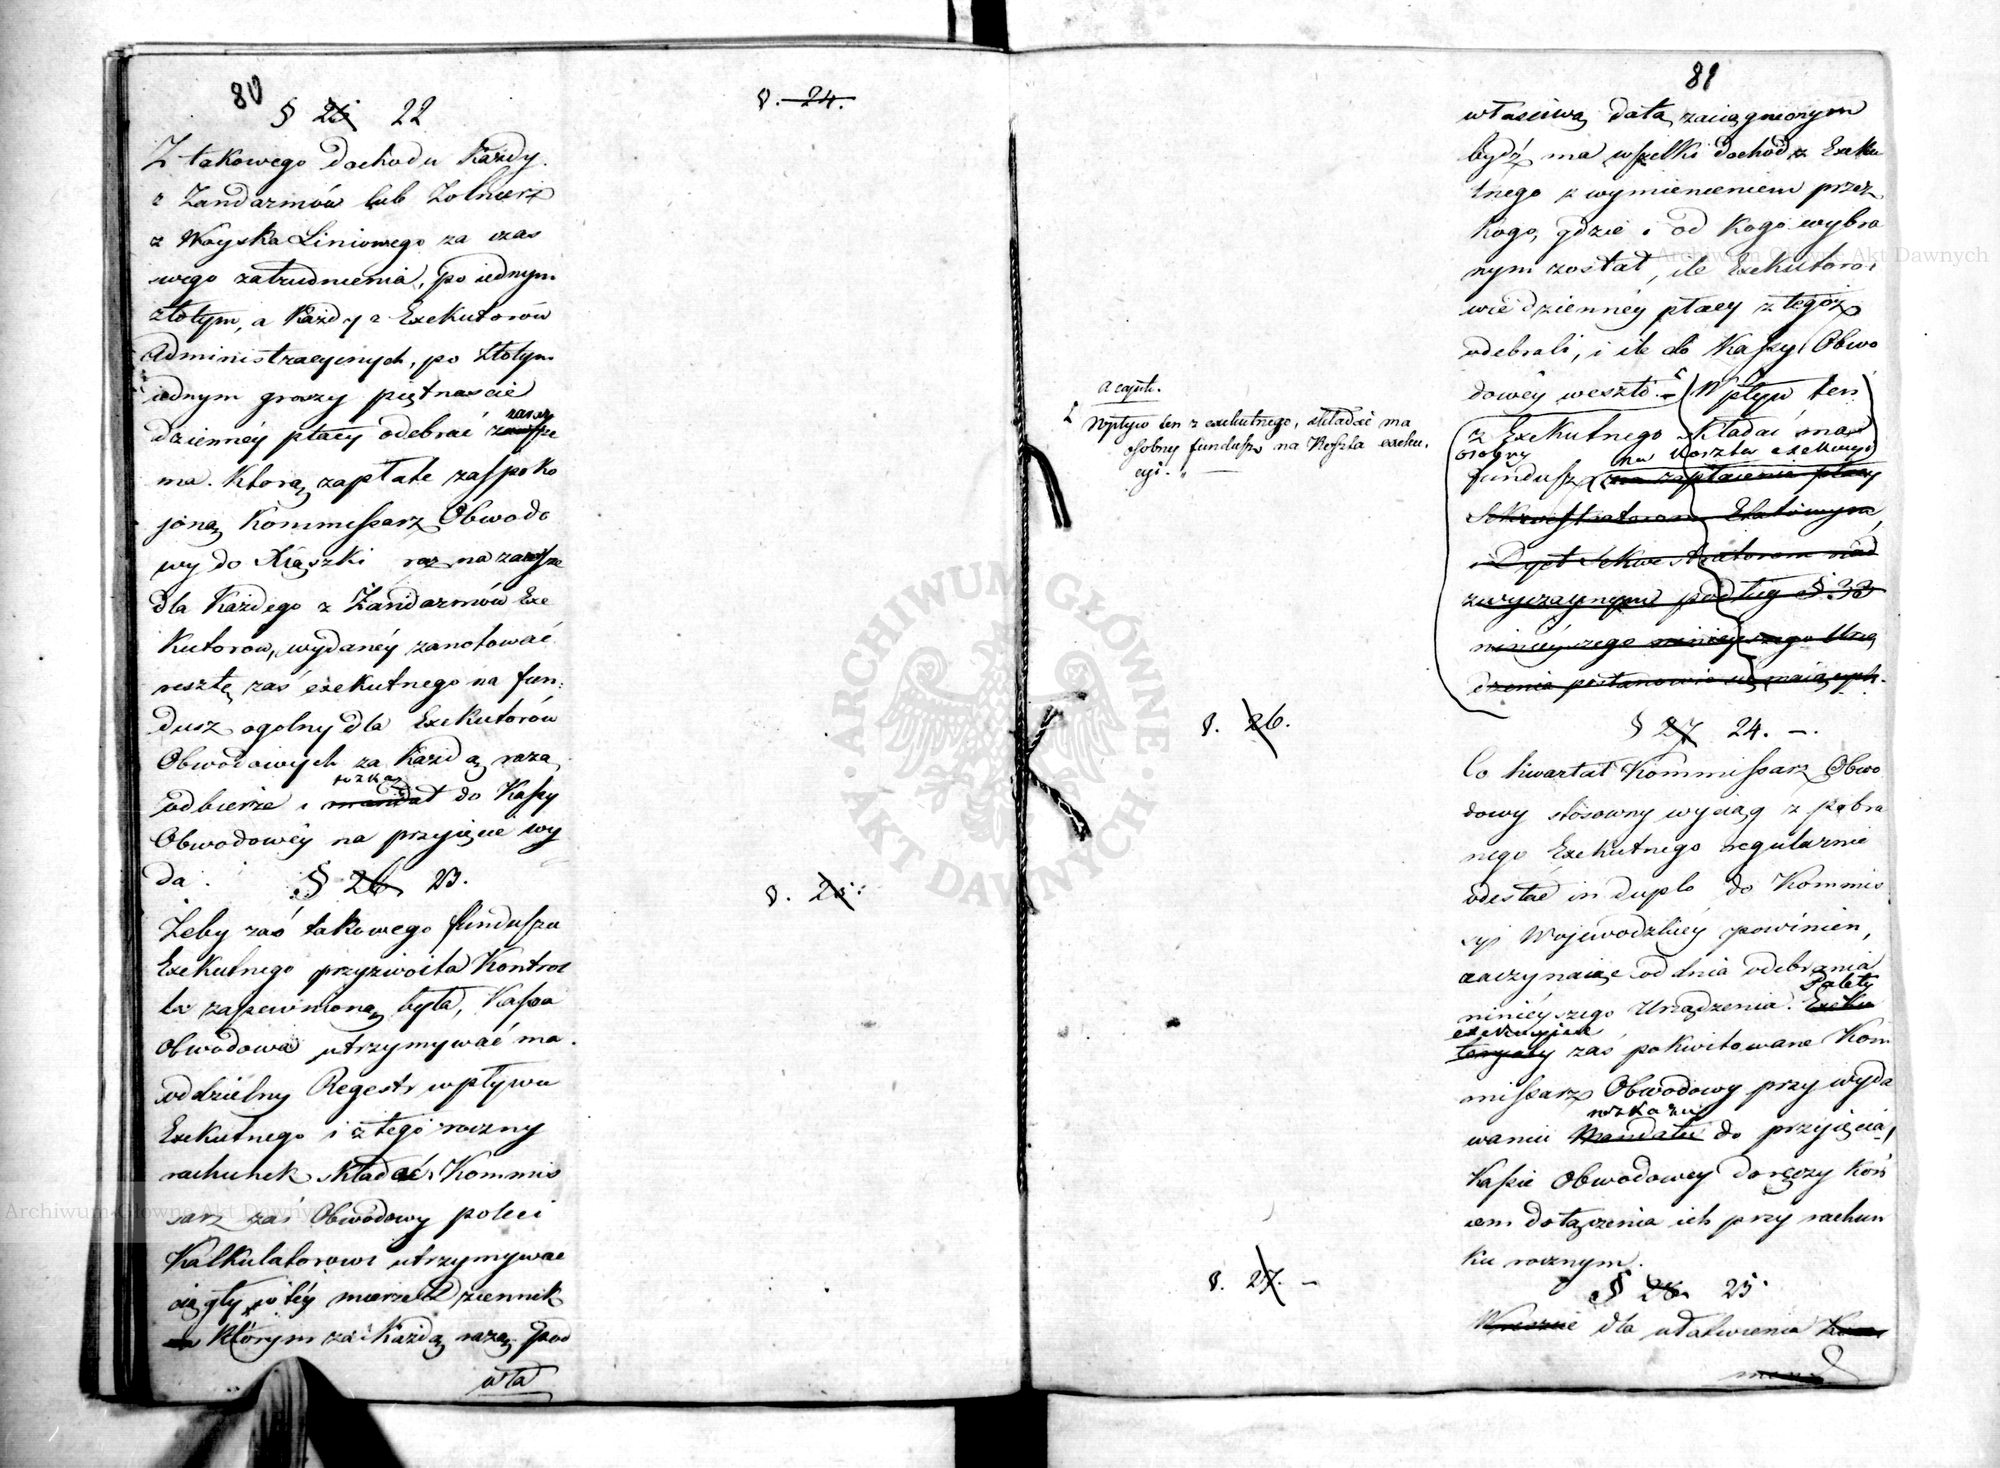 80
§ 25 22
Z takowego dochodu każdy
z Żandarmów lub Żołnierz
z Woyska Liniowego za czas
swego zatrudnienia, po iednym
złotym, a Każdy z Exekutorów
Administracyinych, po złotym
iednym groszy piętnaście
zaraz
dzienney płacy odebrać zawsze
ma. Którą zapłatę zaspoko
joną Kommissarz Obwodo
wy do Xiąszki raz na zawsze
dla Każdego z Żandarmów Exe
kutorow, wydaney zanotować
resztę zaś exekutnego na fun:
dusz ogolny dla Exekutorów
Obwodowych za Każdą razą
rozkaz
odbierze i mandat do Kassy
Obwodowey na przyięcie wy
da.
§ 26 23.
Żeby zaś takowego funduszu
Exekutnego przyzwoita Kontrol
la zapewnioną była, Kassa
Obwodowa utrzymywać ma
oddzielny Regestr wpływu
Exekutnego i z tego roczny
rachunek składać, Kommis
sarz zaś Obwodowy poleci
Kalkulatorowi utrzymywać
ciągły w tey mierze dziennik
w którym za Każdą razą pod
wła
§. 24.
§. 25.
a capite.
Wpływ ten z exekutnego, składać ma
osobny fundusz na Koszta exeku
cyi.
§. 26.
§. 27. –
81
właściwą datą zaciągnionym
bydź ma wszelki dochód z Exeku
tnego z wymienieniem przez
kogo, gdzie i od kogo wybra
nym został, ile Exekutoro:
wie dzienney płacy z tegoż
odebrali, i ile do Kassy Obwo
dowey weszło. – Wpływ ten
z Exekutnego składać ma
osobny na Koszta exekucyi
fundusz na zapłacenie płacy
Sekwestratorom Etatowym
i Dyet Sekwestratorom nad
zwyczaynym podług §. 33
ninieyszego ninieyszego Urzą
dzenia postanowić się maiących.
§ 27 24. –.
Co kwartał Kommissarz Obwo
dowy stósowny wyciąg z pobra
nego Exekutnego regularnie
odesłać in duplo do Kommis
syi Wojewodzkiey powinien,
zaczynaiąc od dnia odebrania
Palety
ninieyszego Urządzenia. Exeku
exekucyine
toryały zaś pokwitowane Kom
missarz Obwodowy przy wyda
rozkazu
waniu Mandatu do przyięcia,
Kassie Obwodowey doręczy koń
cem dołączenia ich przy rachun
ku rocznym.
§ 28 25.
Wreszcie dla ułatwienia Kom
Archiwum Główne Akt Dawnych
Archiwum Główne Akt Dawnych
ARCHIWUM GŁÓWNE
AKT DAWNYCH